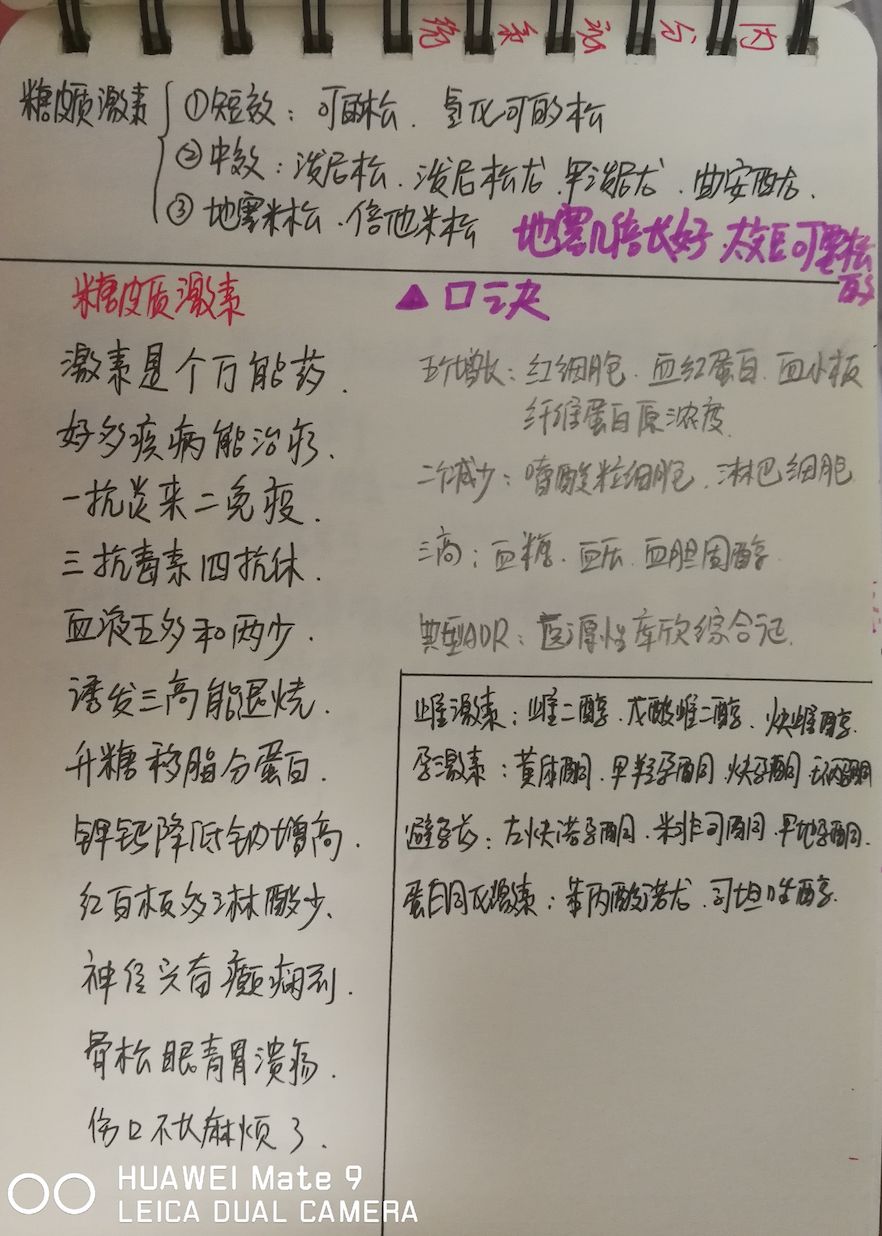 内分泌系统
糖皮质激素 ①短效：可的松．氢化可的松
②中效：泼尼松．泼尼松龙．甲泼尼龙．曲安西龙．
③地塞米松．倍他米松
地塞几倍长好 太短可要松
的
糖皮质激素
▲口诀
激素是个万能药．
好多疾病能治疗．
一抗炎来二免疫．
三抗毒素四抗休．
血液五多和两少．
诱发三高能退烧．
升糖移脂分蛋白．
钾钙降低钠增高．
红白板多淋酸少．
神经兴奋癫痫到．
骨松眼青胃溃疡．
伤口不长麻烦了．
五个增长：红细胞．血红蛋白．血小板
纤维蛋白原浓度．
二个减少：嗜酸粒细胞．淋巴细胞
三高：血糖．血压．血胆固醇．
典型ADR：医源性库欣综合征．
雌激素：雌二醇．戊酸雌二醇．炔雌醇．
孕激素：黄体酮．甲羟孕酮．炔孕酮
避孕药：左炔诺孕酮．米非司酮．甲地孕酮．
蛋白同化激素：苯丙酸诺龙．司坦唑醇．
HUAWEI Mate 9
LEICA DUAL CAMERA